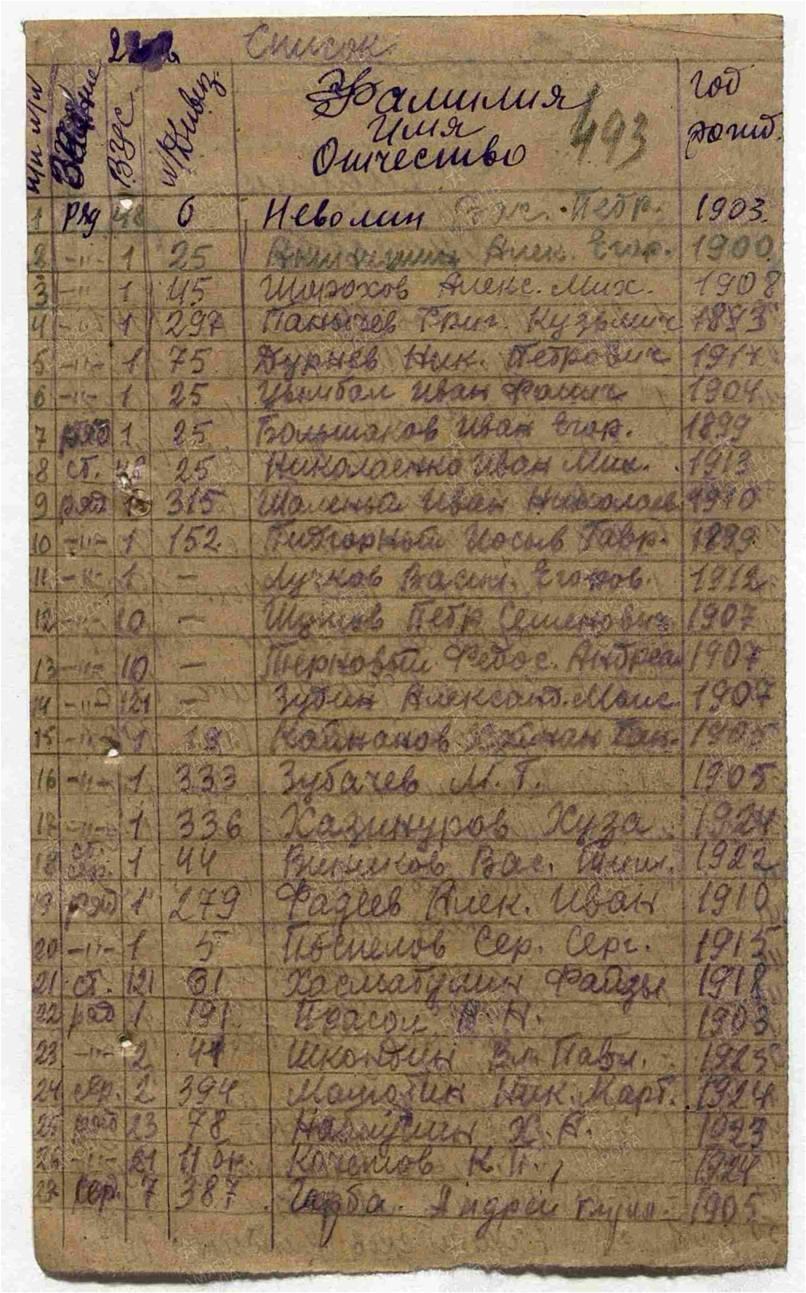 Список
п/п п/п Звание ВУС п/дивиз. Фамилия Имя Отчество 493 год рожд.
1 ряд 48 6 Неволин Вас. Петр. 1903.
2 -"- 1 25 Алек. Егор. 1900
3 -"- 1 45 Шорохов Алекс. Мих. 1908
4 -"- 1 297 Панычев Григ. Кузьмич 1893
5 -"- 1 75 Дурнев Ник. Петрович 1914
6 -"- 1 25 Цымбал Иван Фомич 1904
7 ряд 1 25 Большаков Иван Егор. 1899
8 ст. 48 25 Николаенко Иван Мих. 1913
9 ряд 1 315 Шаленый Иван Николаев. 1910
10 -"- 1 152 Пидгорный Иосыв Гавр. 1899
11 -"- 1 — Лучков Васил. Егоров. 1912
12 -"- 10 — Шутов Петр Семенович 1907
13 -"- 10 — Терновый Федос. Андреа 1907
14 -"- 121 — Зубин Александ. Моис. 1907
15 -"- 1 19 1905
16 -"- 1 333 Зубачев М. Г. 1905
17 -"- 1 336 Хазинуров Хуза 1924
18 ст. сер. 1 44 Виников Вас. Тим. 1922
19 ряд 1 279 Фадеев Алек. Иван 1910
20 -"- 1 5 Поспелов Сер. Серг. 1915
21 ст. 121 61 Хасматулин Файзы 1918
22 ряд 1 191 Прасол Н. 1903
23 -"- 2 44 Шкондин Вл. Павл. 1925
24 сер. 2 394 Ник. Март. 1924
25 ряд 23 78 Х. А. 1923
26 -"- 21 11 он. Кочетов К. П. 1924
27 сер. 7 387 Андрей 1905